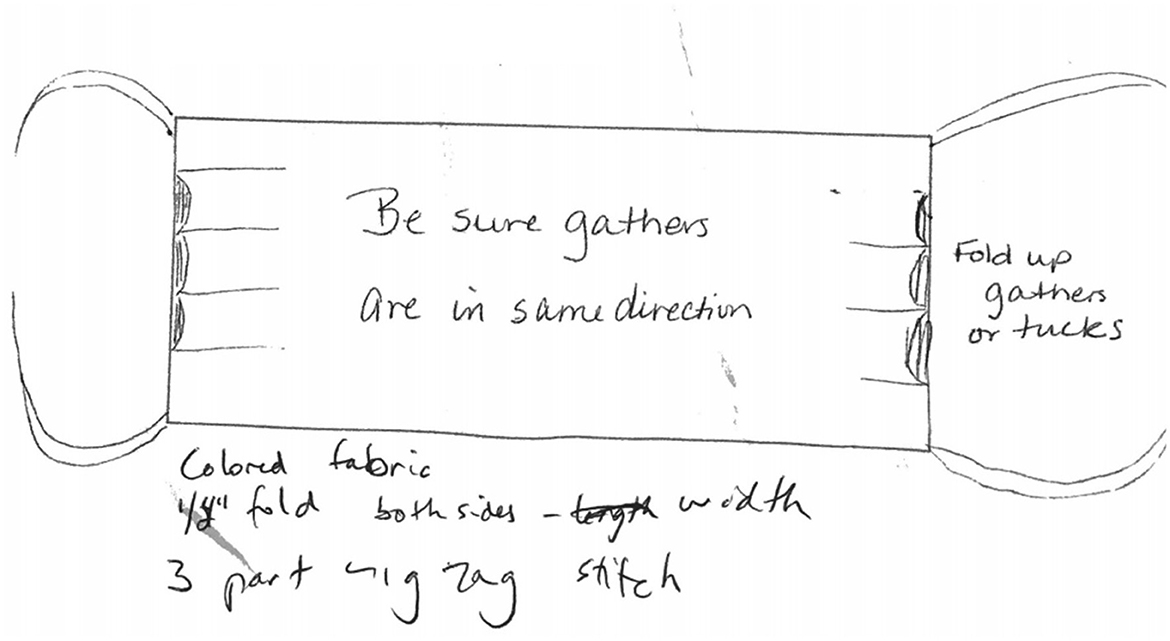 Be sure gathers
are in same direction
Fold up
gathers
or tucks
Colored fabric
fold both sides - length width
3 part zig zag stitch